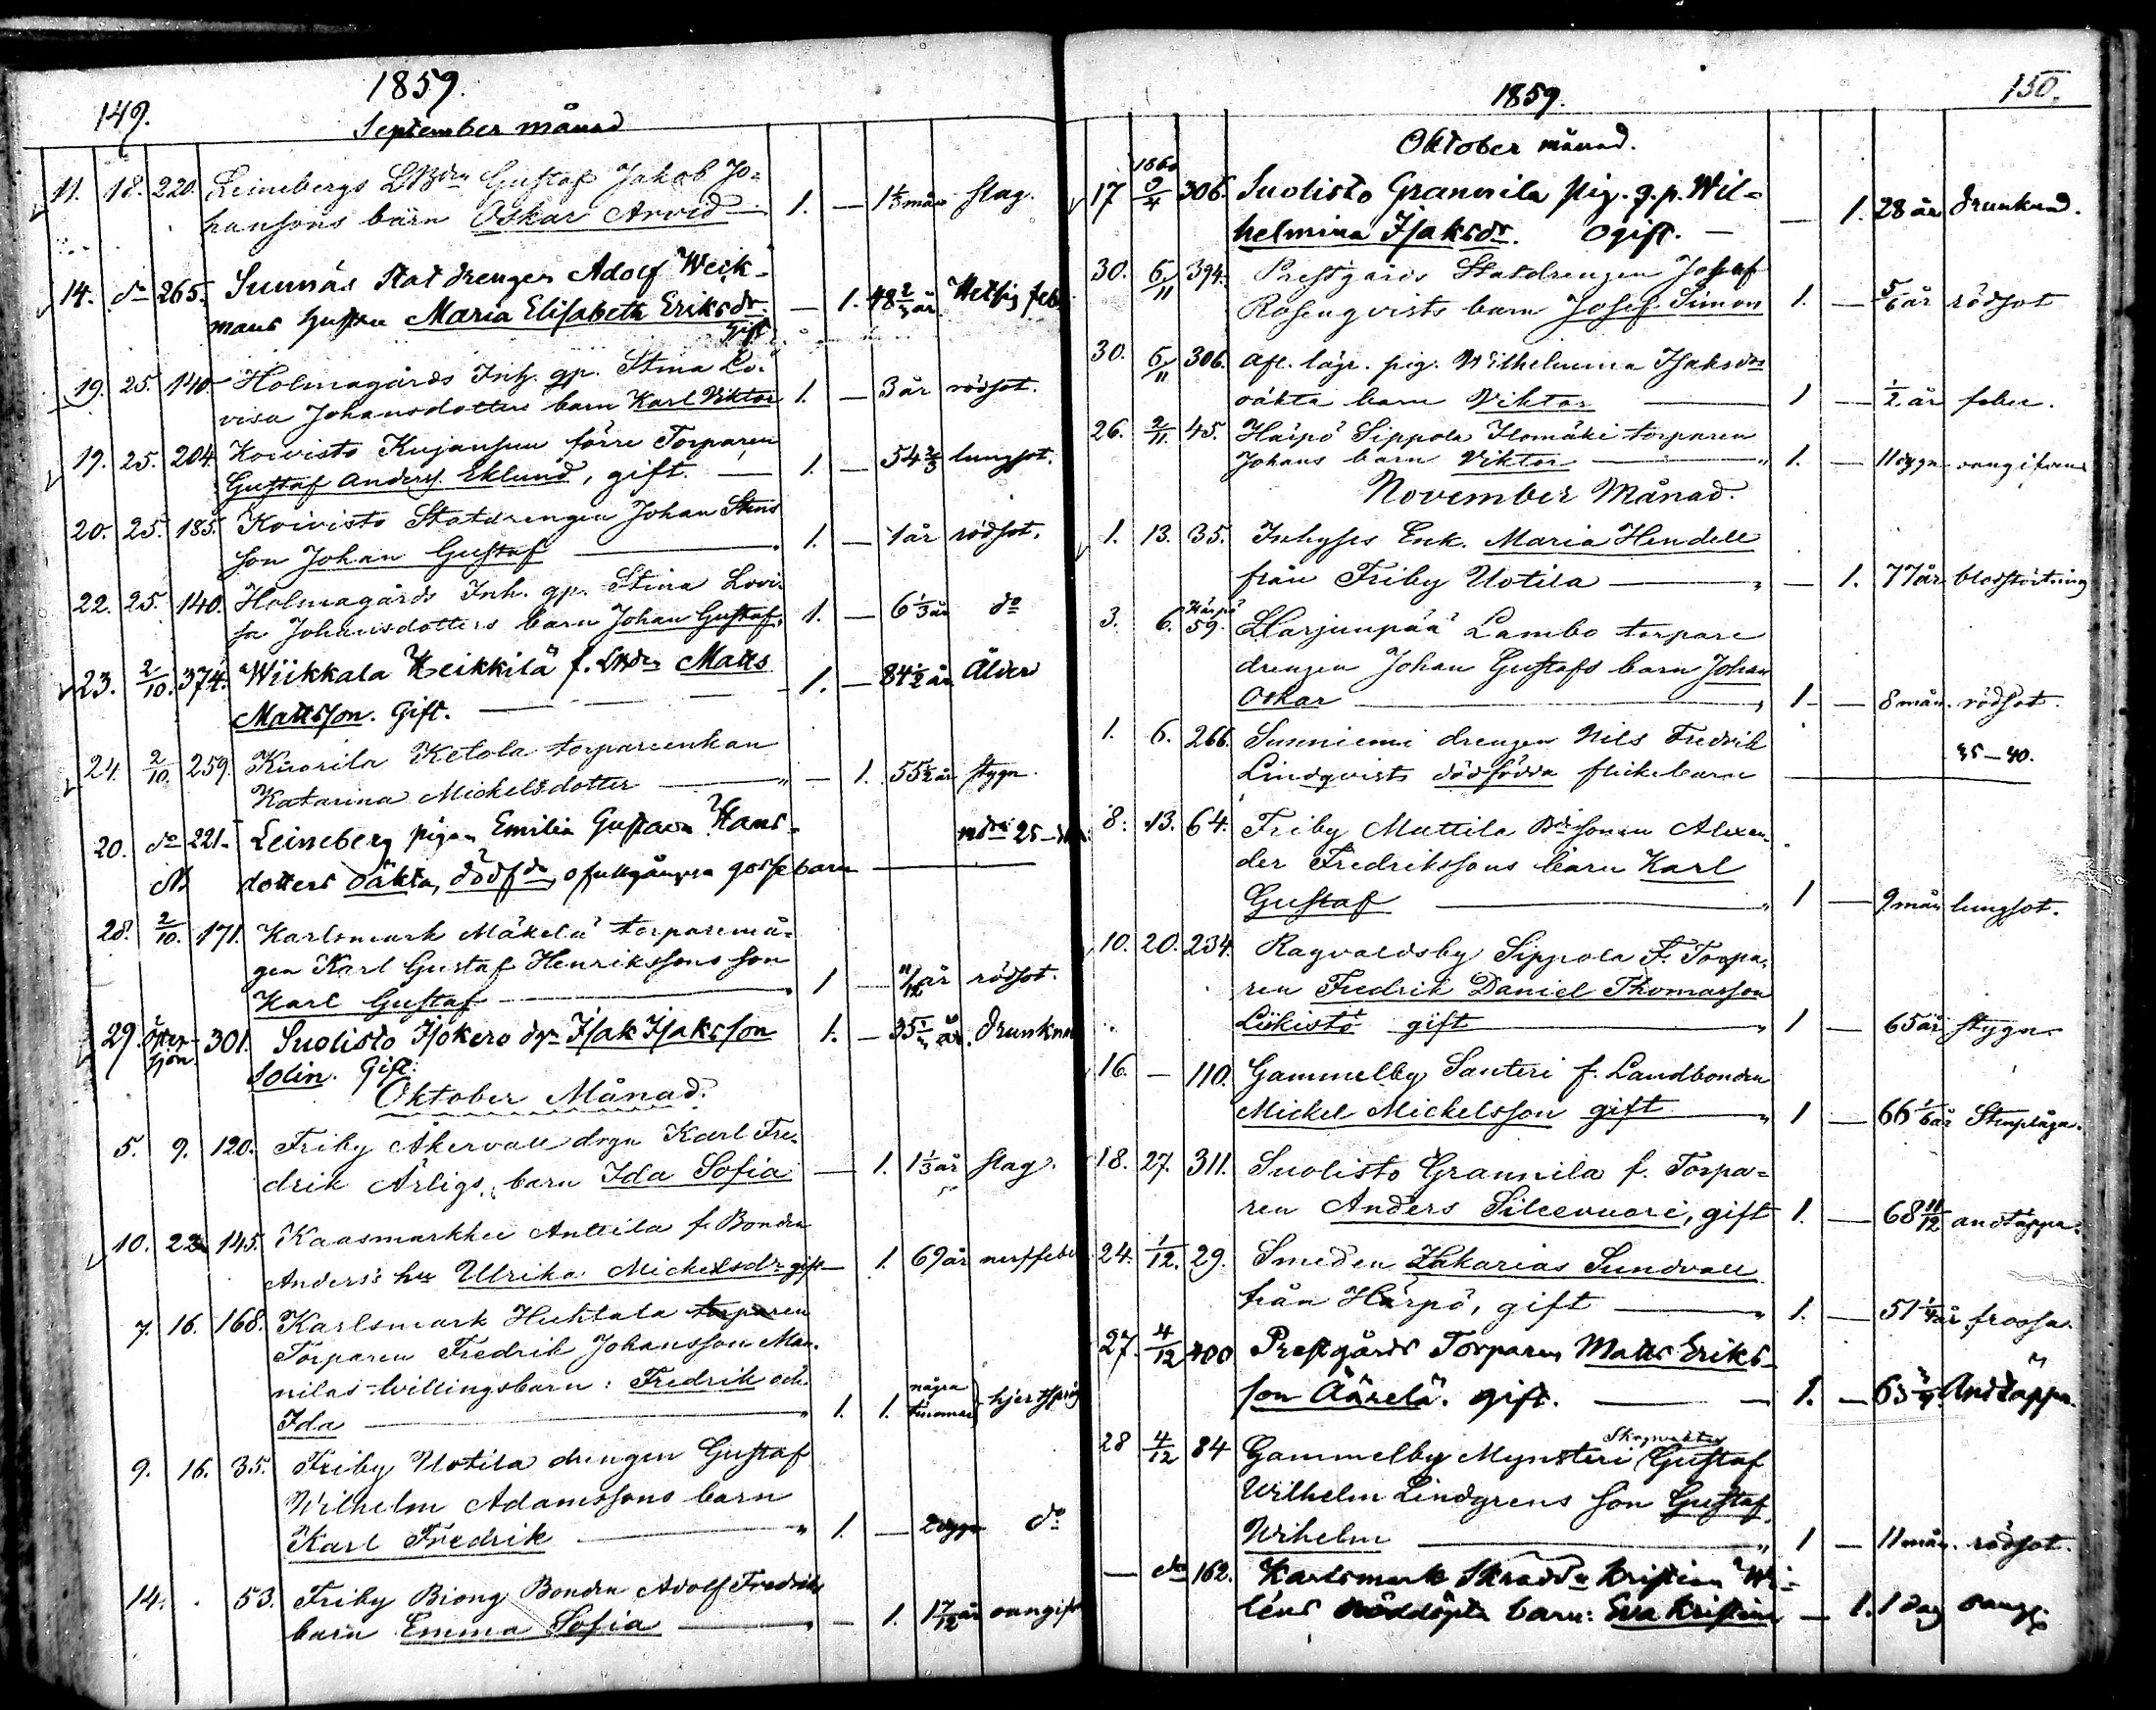 149.
1859.
September månad
11. 18. 220. Leinebergs LBdn Gustaf Jakob Jo-
hansons barn Oskar Arvid 1. — 1 1/2 mån slag.
14. do 265. Sunnäs Statdrengen Adolf Weck-
mans hustru Maria Elisabeth Eriksdr. — 1. 48 2/3 år Hetsig feb
Gift
19. 25. 140. Holmagårds Inh. qp. Stina Lo-
visa Johansdotters barn Karl Viktor 1. — 3 år rödsot.
19. 25. 204. Koivisto Kujansuu förre Torparen
Gustaf Anders. Eklund, gift. — 1. — 54 2/3 lungsot.
20. 25. 185. Koivisto Statdrengen Johan Stens
son Johan Gustaf — 1. — 1 år rödsot.
22. 25. 140. Holmagårds Inh. qp. Stina Lovi-
sa Johansdotters barn Johan Gustaf. 1. — 6 1/3 år do
23. 2/10. 374. Wiikkala Heikkilä f. LBdn Matts
Mattsson. Gift. — 1. — 84 1/2 år Ålder
24. 2/10. 259. Kuorila Ketola torpareenkan
Katarina Mickelsdotter — " — 1. 55 1/2 år stygn.
20. do 221. Leineberg pigan Emilia Gustava Hans- modr 25-
NB dotters oäkta, dödfda, ofullgångna gossebarn —
28. 2/10. 171. Karlsmark Mäkelä torparemå-
gen Karl Gustaf Henrikssons son
Karl Gustaf — 1 — 11/12 år rödsot.
29. Östersjön 301. Suolisto Isokero drgn Isak Isaksson 1. — 35 år. Drunknad
Solin. Gift.
Oktober Månad.
5. 9. 120. Friby Åkervall drgn Karl Fre-
drik Ärligs barn Ida Sofia — 1. 1 1/3 år slag.
10. 22. 145. Kaasmarkku Anttila f. Bonden
Anders's hu Ulrika Mickelsdr gift — 1. 69 år nerffeber
7. 16. 168. Karlsmark Huhtala torparen
Torparen Fredrik Johansson Man-
nilas tvillingsbarn: Fredrik och
Ida — " 1. 1. några timmar hjertspång
9. 16. 35. Friby Uotila drengen Gustaf
Wilhelm Adamssons barn
Karl Fredrik — " 1. — 2 dygn do
14. 53. Friby Biong Bonden Adolf Fredriks
barn Emma Sofia — — 1. 1 7/12 år oangifv
150.
1859.
Oktober månad.
17 1860 9/4 306. Suolisto Grannila pig. q.p. Wil-
helmina Isaksdr. Ogift. — — 1. 28 år Drunknad.
30. 6/11 394. Prestgårds Statdrengen Josef
Rosenqvists barn Josef Simon 1. — 5/6 år rödsot
30. 6/11 306. Afl. lägr. pig. Wilhelmina Isaksdrs
oäkta barn Viktor — 1 — 1/2 år feber.
26. 2/11. 45. Härpö Sippola Ilomäki torparen
Johans barn Viktor — " 1. — 11 dygn oangifven
November Månad.
1. 13. 35. Inhyses Enk. Maria Hendell
från Friby Uotila — " — 1. 77 år blodstörtning
3. 6. Härpö 59. Harjunpää Lambo torpare
drengen Johan Gustafs barn Johan
Oskar — , 1 — 8 mån. rödsot.
1. 6. 266. Sunniemi drengen Nils Fredrik 35-40.
Lindqvists dödfödda flickebarn —
8. 13. 64. Friby Mattila Bdesonen Alexan-
der Fredrikssons barn Karl
Gustaf — " 1 — 9 mån lungsot.
10. 20. 234. Ragvaldsby Sippola F. Torpa-
ren Fredrik Daniel Thomasson
Liikistö gift — " 1 — 65 år stygn.
16. — 110. Gammelby Santeri f. Landbonden
Mickel Mickelsson gift — " 1 — 66 1/6 år Stenplåga.
18. 27. 311. Suolisto Grannila f. Torpa-
ren Anders Silcevuori, gift 1. — 68 11/12 andtäppa.
24. 1/12. 29. Smeden Zakarias Sundvall
från Härpö, gift — " 1. — 51 1/4 år frossa.
27. 4/12 400 Prestgårds Torparen Matts Eriks-
son Äärelä. gift. — 1. — 63 3/4 Andtäppa.
28 4/12 84 Gammelby Mynsteri Skogvaktar Gustaf
Wilhelm Lindgrens son Gustaf
Wihelm — " 1 — 11 mån. rödsot.
— do 162. Karlsmark Skradd. Kristian Wi-
léns nöddöpta barn: Eva Kristina — 1. 1 dag oang.